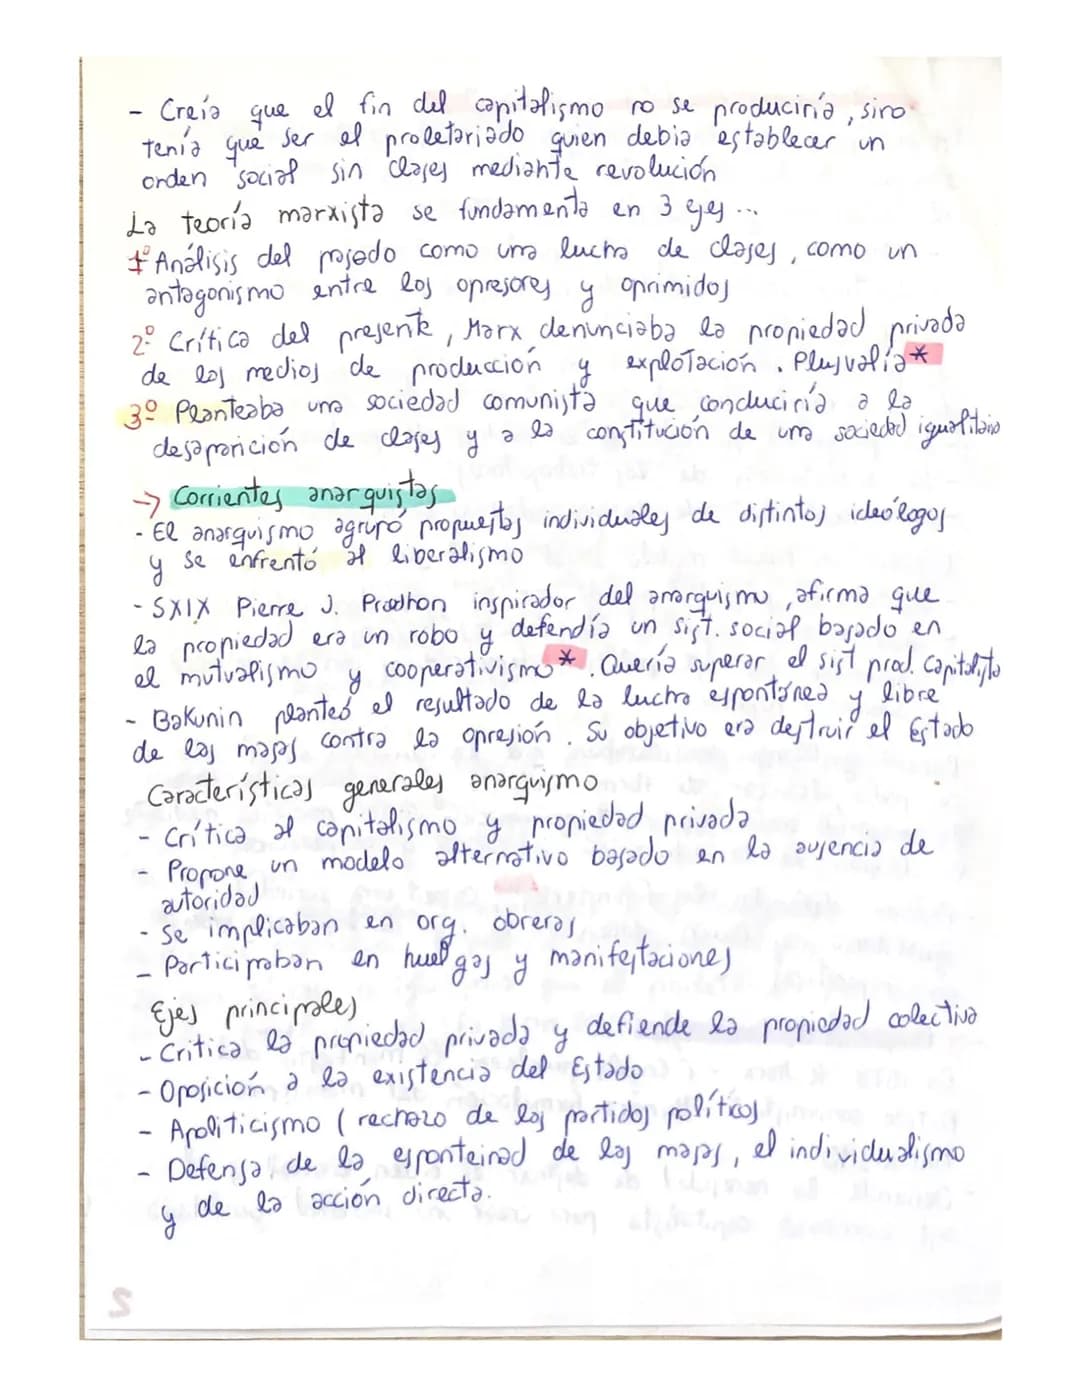 - Creía que el fin del capitalismo no se produciría, sino
tenía que ser el proletariado quien debia establecer un
orden social sin clases mediante revolución
La teoría marxista se fundamenta en 3 ejes ...
1º Análisis del pasado como una lucha de clases, como un
antagonismo entre los opresores y oprimidos
2º Crítica del presente, Marx denunciaba la propiedad privada
de los medios de producción y explotación. Plusvalía *
3º Planteaba una sociedad comunista que conduciría a la
desaparición de clases y a la constitución de una sociedad igualitaria
→ Corrientes anarquistas
- El anarquismo agrupó propuestas individuales de distintos ideólogos
y se enfrentó al liberalismo
- SXIX Pierre J. Proudhon inspirador del anarquismo, afirma que
la propiedad era un robo y defendía un sist. social basado en
el mutualismo y cooperativismo *. Quería superar el sist prod. capitalista
- Bakunin planteó el resultado de la lucha espontánea y libre
de las masas contra la opresión. Su objetivo era destruir el Estado
Características generales anarquismo
- Crítica al capitalismo y propiedad privada
- Propone un modelo alternativo basado en la ausencia de
autoridad
- Se implicaban en org. obreras
- Participaban en huelgas y manifestaciones
Ejes principales
- Critica la propiedad privada y defiende la propiedad colectiva
- Oposición a la existencia del Estado
- Apoliticismo (rechazo de los partidos políticos
- Defensa de la esponteinad de las masas, el individualismo
y de la acción directa.